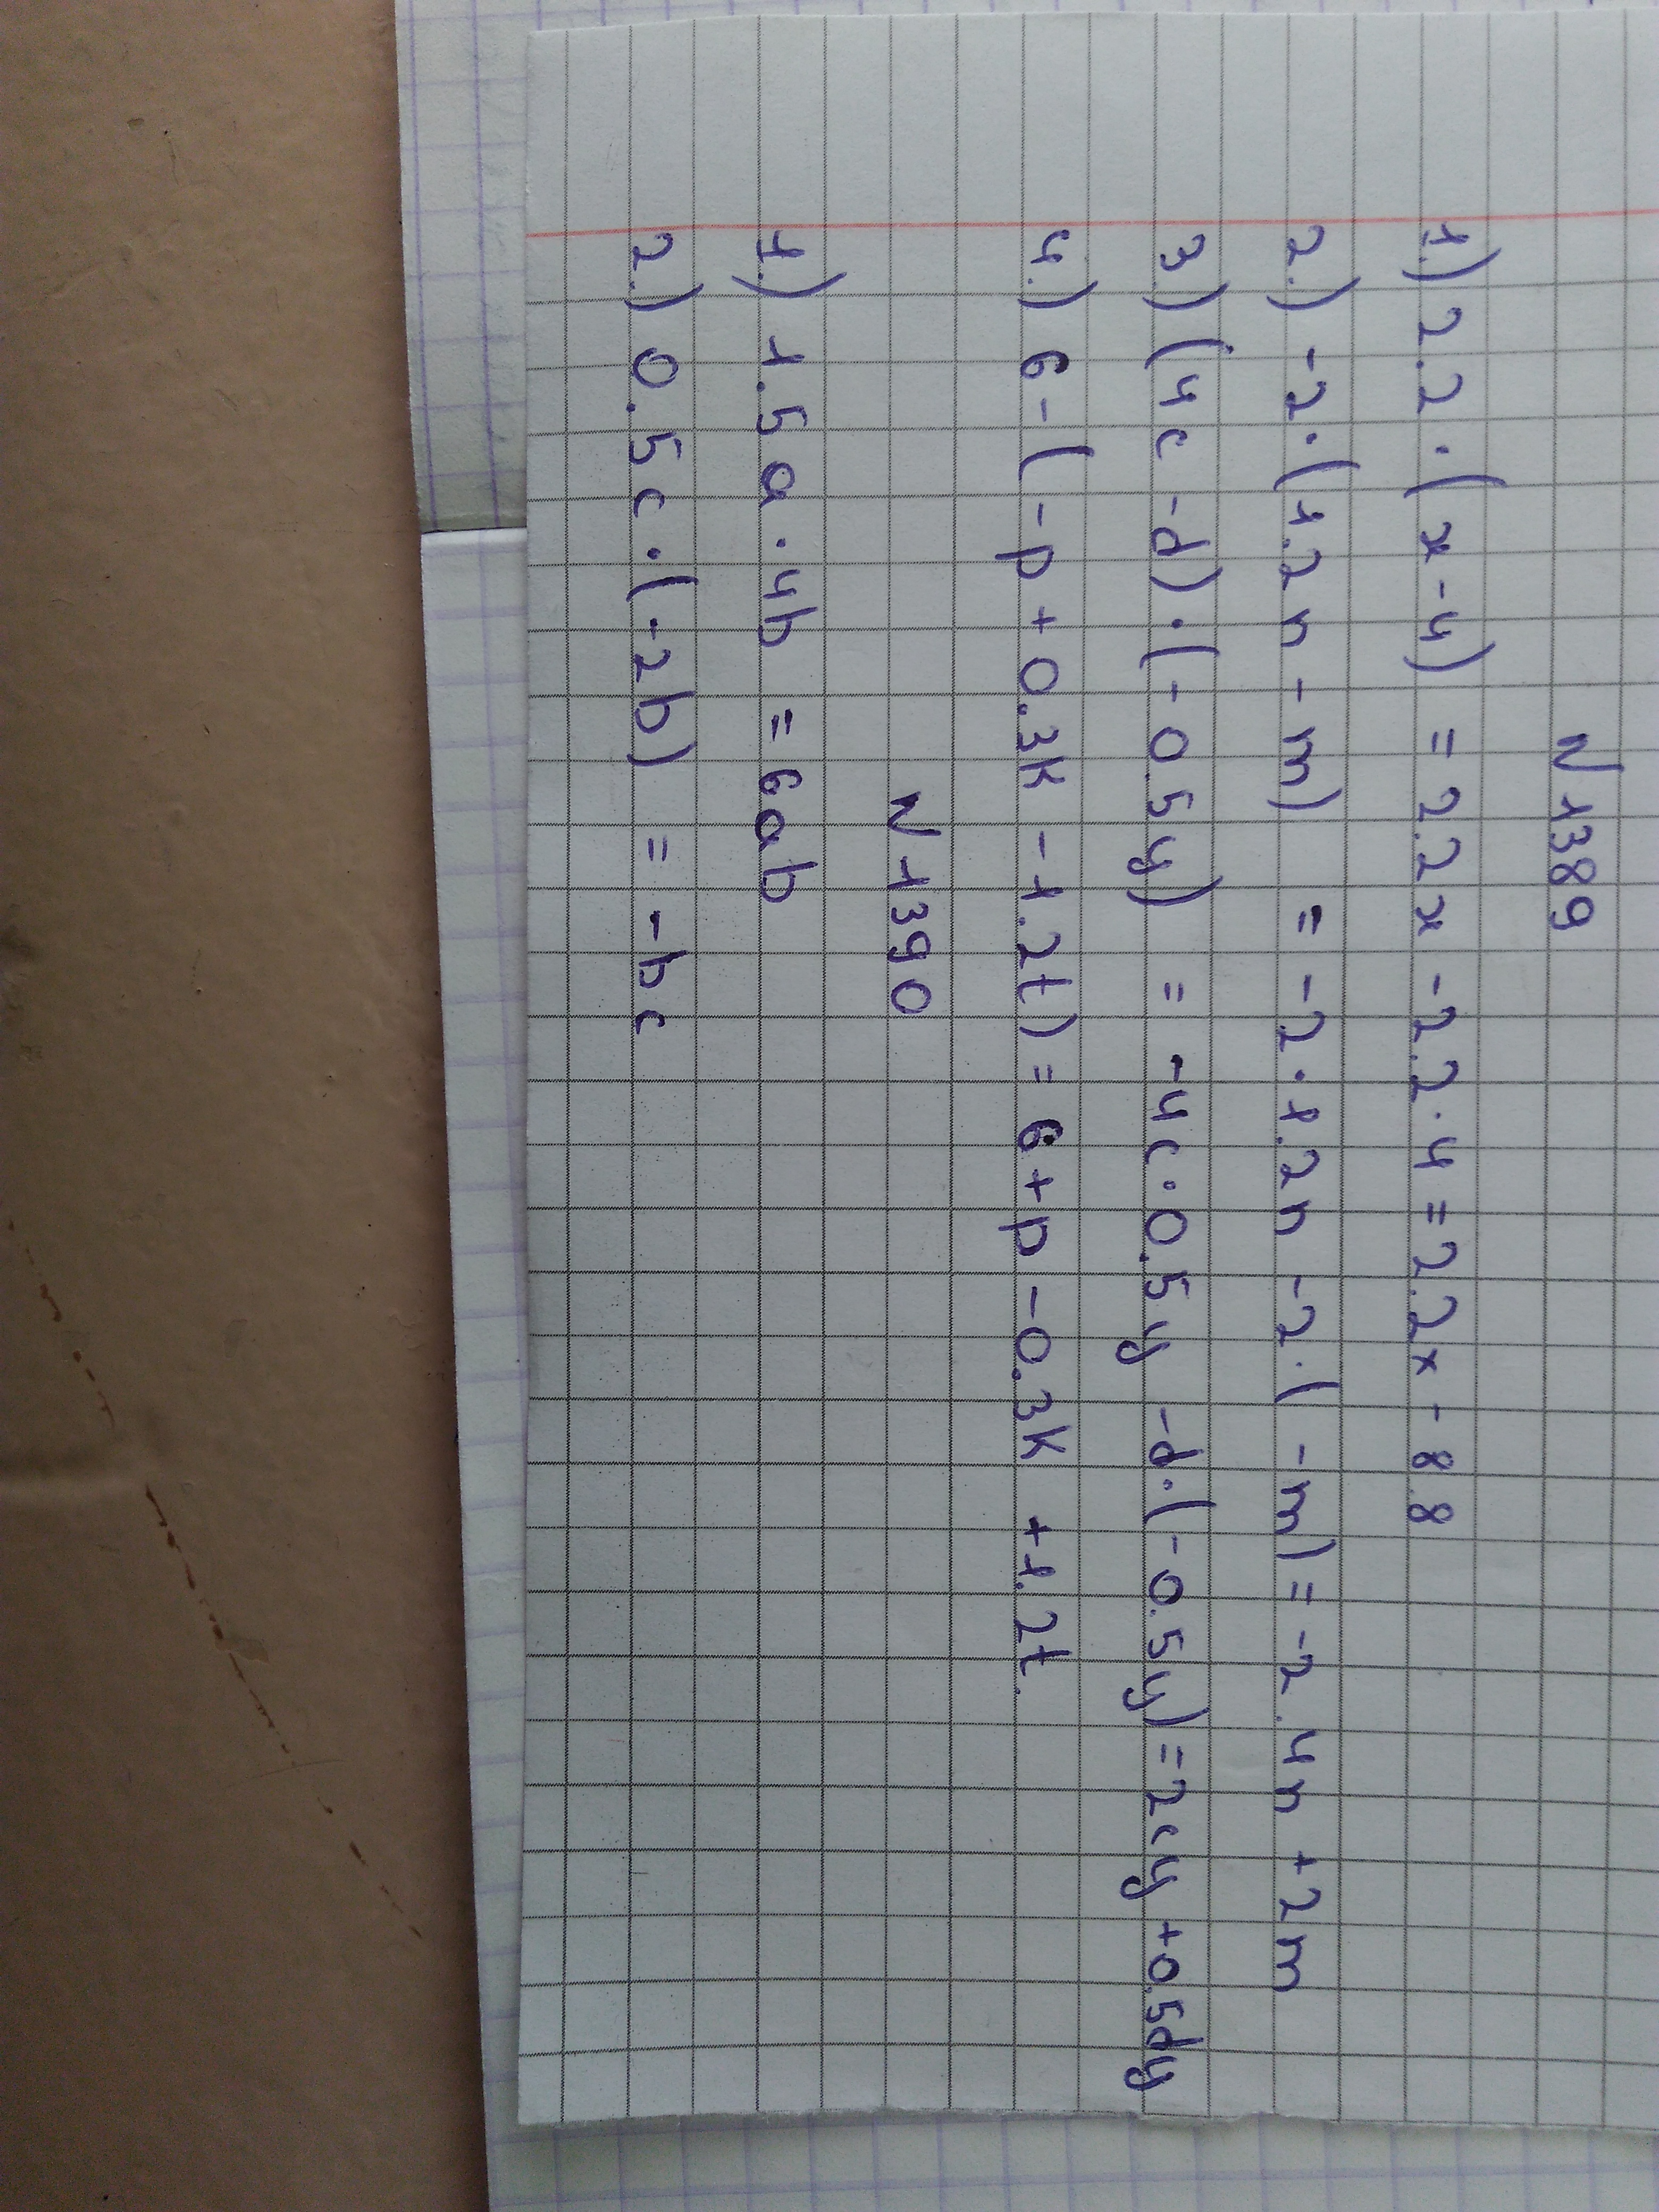 N 1389
1.) 2.2 · (x - 4) = 2.2x - 2.2 · 4 = 2.2x - 8.8
2.) -2 · (1.2n - m) = -2 · 1.2n -2 · (-m) = -2.4n + 2m
3.) (4c - d) · (-0.5y) = -4c · 0.5y -d · (-0.5y) = 2cy + 0.5dy
4.) 6 - (-p + 0.3k - 1.2t) = 6 + p - 0.3k + 1.2t.
N 1390
1.) 1.5a · 4b = 6ab
2.) 0.5c · (-2b) = -bc